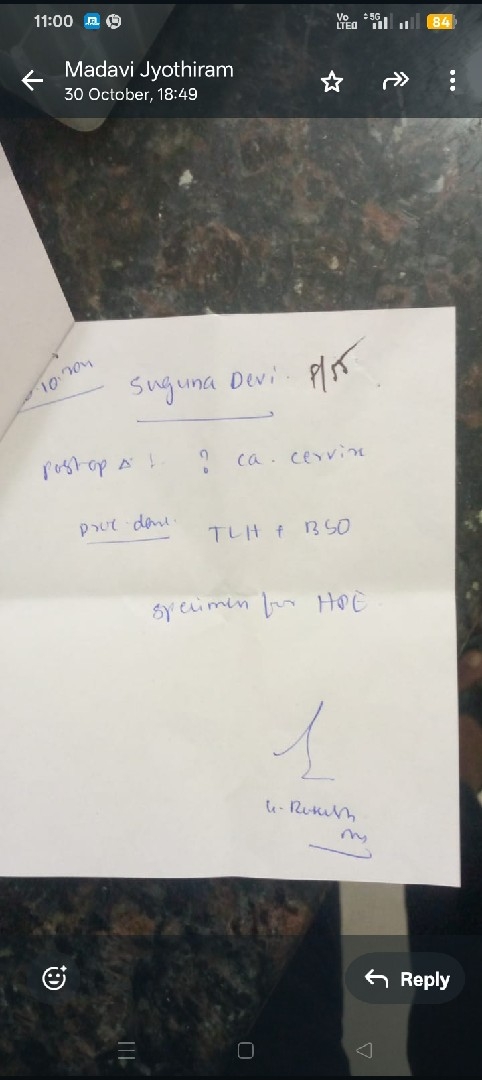 11:00
Vo LTE 5G 84
Madavi Jyothiram
30 October, 18:49
Suguna Devi.
postop Δ ? ca. cervix
proc. done. TLH + BSO
specimen for HPE.
Reply